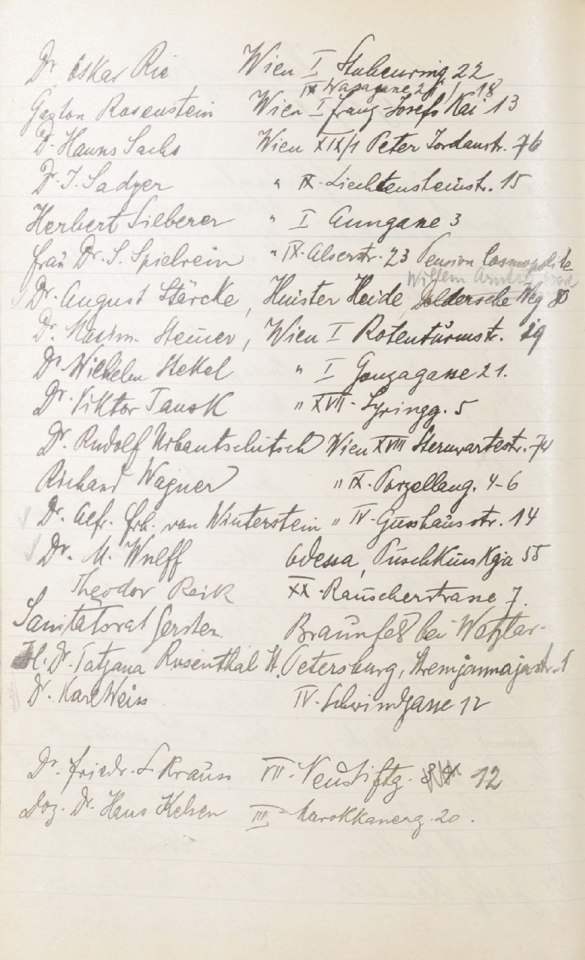 Dr. Oskar Rie Wien I Stubenring 22
IX Wasagasse 18
Gaston Rosenstein Wien I Franz-Josefs Kai 13
Dr. Hanns Sachs Wien XIX/1 Peter Jordanstr. 76
Dr. I. Sadger " IX. Liechtensteinstr. 15
Herbert Sieberer " I Aungasse 3
Frau Dr. S. Spielrein " IX. Alserstr. 23 Pension Cosmopolite
Wilhelm
Dr. August Stärcke, Huister Heide, Doldersche Weg
Dr. Maxim. Steiner, Wien I Rotenturmstr. 19
Dr Wilhelm Stekel " I Gonzagagasse 21.
Dr. Viktor Tausk " XVII. Syringg. 5
Dr. Rudolf Urbantschitsch Wien XVIII Sternwartestr. 74
Richard Wagner " IX. Porzellang. 4-6
Dr. Alfr. Frh. von Winterstein " IV. Gusshausstr. 14
Dr. M. Wulff Odessa, Puschkinskaja 55
Theodor Reik XX. Rauscherstrasse 7.
Sanitätsrat Gerster. Braunfels bei Wetzlar.
Dr. Tatjana Rosenthal St. Petersburg, Stremjannajastr. 1
Dr. Karl Weiss IV. Schwindgasse 12
Dr. Friedr. S. Krauss VII. Neustiftg. 12
Doz. Dr. Hans Kelsen III Marokkanerg. 20.